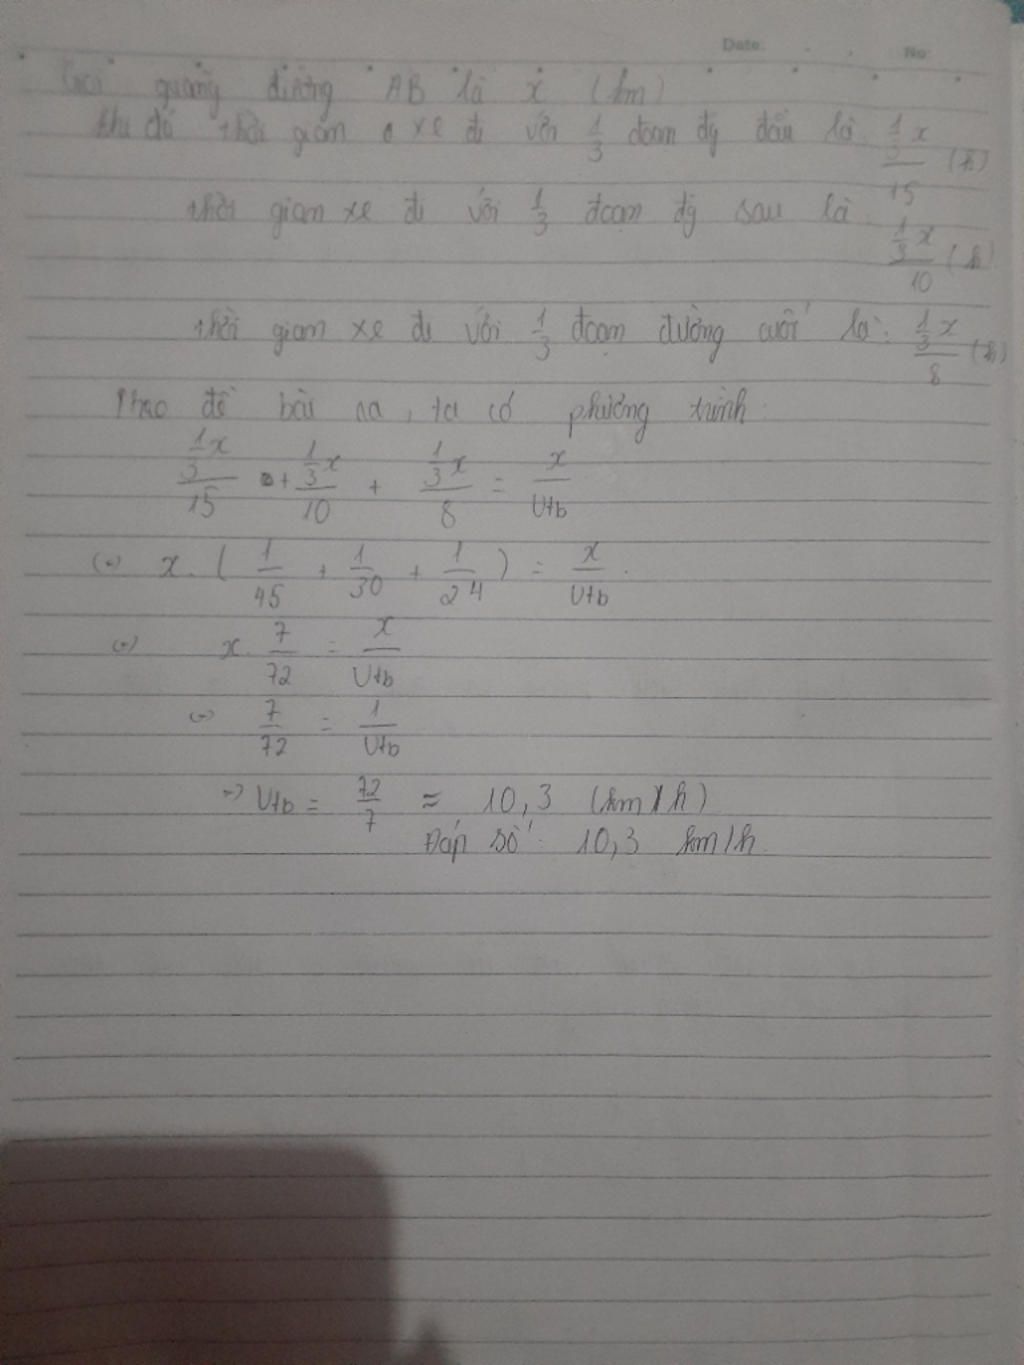 Date: No:
Gọi quãng đường AB là x (km)
Khi đó thời gian xe đi với 1/3 đoạn đg đầu là (1/3 x)/15 (h)
thời gian xe đi với 1/3 đoạn đg sau là (1/3 x)/10 (h)
thời gian xe đi với 1/3 đoạn đường cuối là: (1/3 x)/8 (h)
Theo đề bài ra, ta có phương trình
(1/3 x)/15 + (1/3 x)/10 + (1/3 x)/8 = x/Vtb
(=) x. (1/45 + 1/30 + 1/24) = x/Vtb.
(=) x. 7/72 = x/Vtb
(=) 7/72 = 1/Vtb
=) Vtb = 72/7 ≈ 10,3 (km/h)
Đáp số: 10,3 km/h